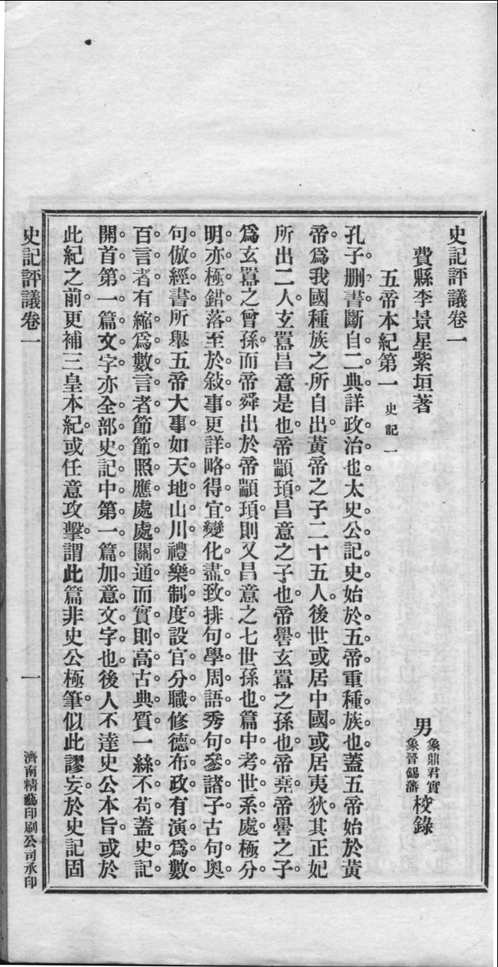 史記評議卷一
費縣李景星紫垣著
男 象鼎君實 象晉錫藩 校錄
五帝本紀第一 史記一
孔子刪書斷自二典詳政治也太史公記史始於五帝重種族也蓋五帝始於黃
帝。爲我國種族之所自出。黃帝之子二十五人。後世或居中國。或居夷狄。其正妃
所出二人。玄囂昌意是也。帝顓頊。昌意之子也。帝嚳。玄囂之孫也。帝堯。帝嚳之子。
爲玄囂之曾孫。而帝舜出於帝顓頊。則又昌意之七世孫也。篇中考世系處極分
明。亦極錯落。至於敍事。更詳略得宜。變化盡致。排句學周語。秀句參諸子。古句奧
句。倣經書。所舉五帝大事。如天地山川禮樂制度設官分職修德布政。有演爲數
百言者。有縮爲數言者。節節照應。處處關通。而實則高古典質。一絲不苟。蓋史記
開首第一篇文字。亦全部史記中第一篇加意文字也。後人不達史公本旨。或於
此紀之前。更補三皇本紀。或任意攻擊。謂此篇非史公極筆。似此謬妄。於史記固
史記評議卷一
一
濟南精藝印刷公司承印